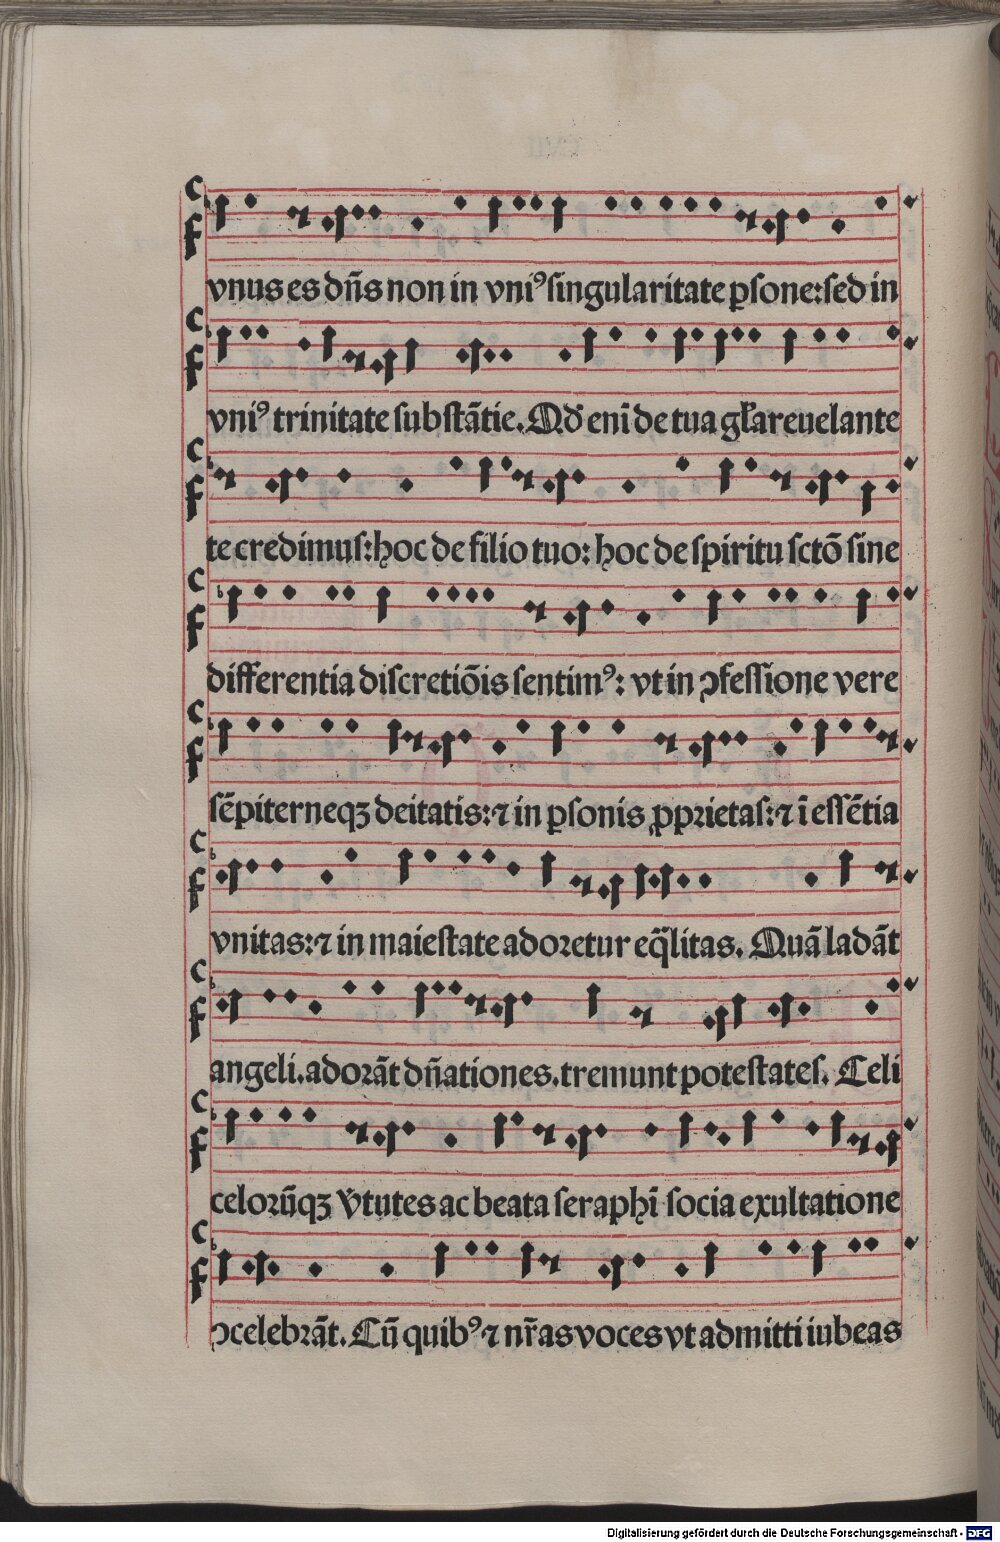 vnus es dn̄s non in vniꝰ singularitate ꝑsone: sed in
vniꝰ trinitate substātie. Qd̕ enī de tua gl̕a reuelante
te credimus: hoc de filio tuo: hoc de spiritu sctō sine
differentia discretiōis sentimꝰ: vt in ꝯfessione vere
sēpiterneqꝫ deitatis: ⁊ in ꝑsonis ꝓprietas: ⁊ ī essētia
vnitas: ⁊ in maiestate adoretur eq̄litas. Quā ladāt
angeli. adorāt dn̄ationes. tremunt potestates. Celi
celorūqꝫ v̕tutes ac beata seraphī socia exultatione
ꝯcelebrāt. Cū quibꝰ ⁊ nr̄as voces vt admitti iubeas
Digitalisierung gefördert durch die Deutsche Forschungsgemeinschaft - DFG